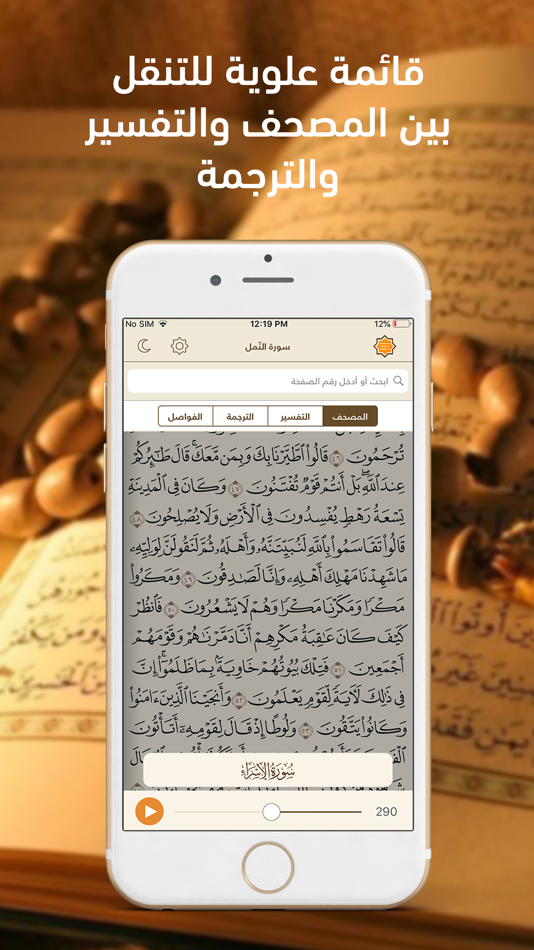 قائمة علوية للتنقل
بين المصحف والتفسير
والترجمة
No SIM 12:19 PM 12%
سورة النّمل
ابحث أو أدخل رقم الصفحة
المصحف التفسير الترجمة الفواصل
تُرْحَمُونَ ٤٦ قَالُوا۟ ٱطَّيَّرْنَا بِكَ وَبِمَن مَّعَكَ ۚ قَالَ طَـٰٓئِرُكُمْ
عِندَ ٱللَّهِ ۖ بَلْ أَنتُمْ قَوْمٌ تُفْتَنُونَ ٤٧ وَكَانَ فِى ٱلْمَدِينَةِ
تِسْعَةُ رَهْطٍ يُفْسِدُونَ فِى ٱلْأَرْضِ وَلَا يُصْلِحُونَ ٤٨
قَالُوا۟ تَقَاسَمُوا۟ بِٱللَّهِ لَنُبَيِّتَنَّهُۥ وَأَهْلَهُۥ ثُمَّ لَنَقُولَنَّ لِوَلِيِّهِۦ
مَا شَهِدْنَا مَهْلِكَ أَهْلِهِۦ وَإِنَّا لَصَـٰدِقُونَ ٤٩ وَمَكَرُوا۟
مَكْرًا وَمَكَرْنَا مَكْرًا وَهُمْ لَا يَشْعُرُونَ ٥٠ فَٱنظُرْ
كَيْفَ كَانَ عَـٰقِبَةُ مَكْرِهِمْ أَنَّا دَمَّرْنَـٰهُمْ وَقَوْمَهُمْ
أَجْمَعِينَ ٥١ فَتِلْكَ بُيُوتُهُمْ خَاوِيَةًۢ بِمَا ظَلَمُوٓا۟ ۗ إِنَّ
فِى ذَٰلِكَ لَـَٔايَةً لِّقَوْمٍ يَعْلَمُونَ ٥٢ وَأَنجَيْنَا ٱلَّذِينَ ءَامَنُوا۟
وَكَانُوا۟ يَتَّقُونَ ٥٣ وَلُوطًا إِذْ قَالَ لِقَوْمِهِۦٓ أَتَأْتُونَ
سُورَةُ الإِسْرَاءِ
290